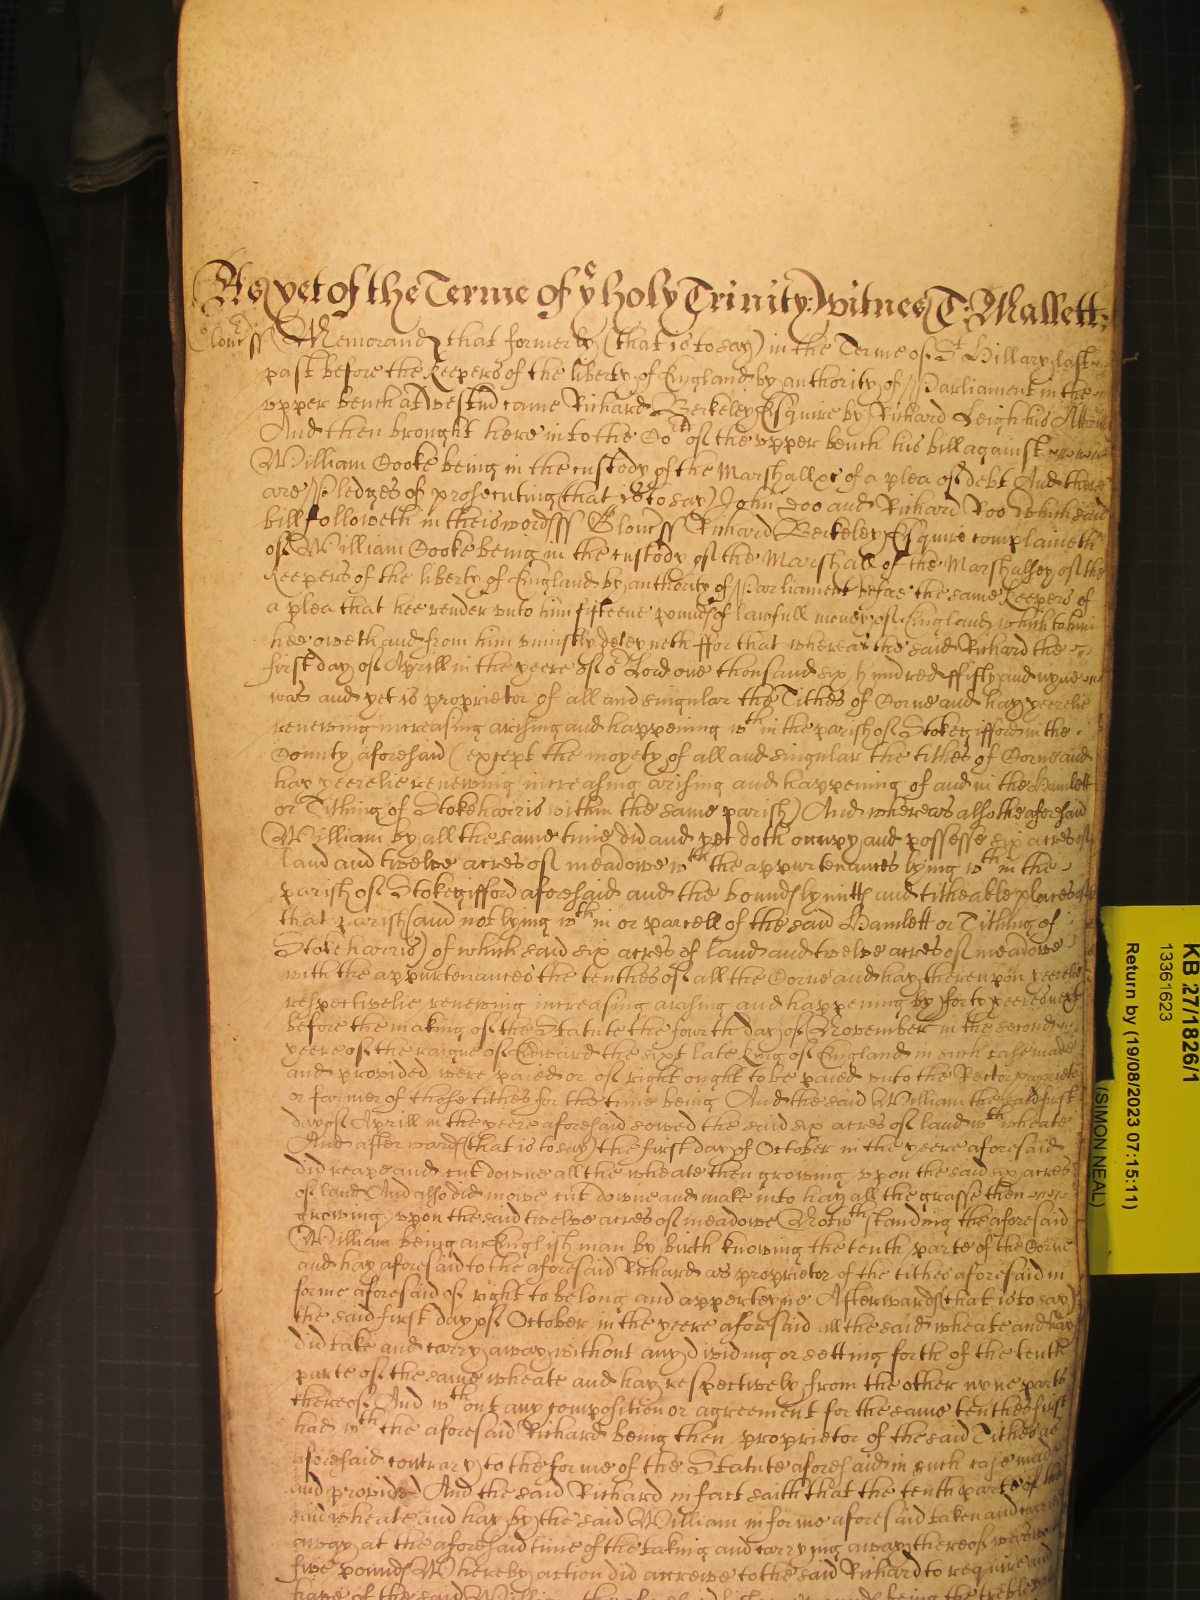 As yet of the Terme of ye holy Trinity: witnes T: Mallett:
Gloucss Memorand that formerly (that is to say) in the Terme of St Hillary last
past before the Keepers of the liberty of England by authority of Parliament in the
upper bench at Westm came Richard Berkeley Esquire by Richard Leigh his Attorn
And then brought here into the Cort of the upper bench his bill against
William Cooke being in the custody of the Marshall &c of a plea of debt And there
are Pledges of prosecuting (that is to say) John Doo and Richard Roo Which said
bill followeth in theis words ss Gloucss Richard Berkeley Esquire complaineth
of William Cooke being in the custody of the Marshall of the Marshalsey of the
Keepers of the liberty of England by authority of Parliament before the same Keepers of
a plea that hee render unto him fifteene pounds of lawfull money of England which to him
hee oweth and from him uniustly deteyneth ffor that whereas the said Richard the
first day of Aprill in the yeere of or Lord one thousand six hundred ffifty and nyne
was and yet is proprietor of all and singular the Tithes of Corne and hay yeerelie
renewing increasing arising and happening wth in the parish of Stokegifford in the
County aforesaid (except the moyety of all and singular the tithes of Corne and
hay yeerelie renewing increasing arising and happening of and in the Hamlett
or Tithing of Stokeharris within the same parish) And whereas also the aforesaid
William by all the same time did and yet doth occupy and possesse six acres of
land and twelve acres of meadowe wth the appurtenances lying wth in the
parish of Stokegifford aforesaid and the bounds lymitts and titheable places of
that parish (and not lying wth in or parcell of the said Hamlett or Tithing of
Stokeharris) of which said six acres of land and twelve acres of meadowe
with the appurtenances the tenthes of all the Corne and hay thereupon yeerelie
respectivelie renewing increasing arising and happening by forty yeeres next
before the making of the Statute the fourth day of November in the second
yeere of the raigne of Edward the sixt late King of England in such case made
and provided were paied or of right ought to be paied unto the Rector proprietor
or farmer of those tithes for the time being And the said William the said first
day of Aprill in the yeere aforesaid sowed the said six acres of land wth wheate
And afterwards (that is to say) the first day of October in the yeere aforesaid
did reape and cut downe all the wheate then growing upon the said six acres
of land And also did mowe cut downe and make into hay all the grasse then
growing upon the said twelve acres of meadowe Notwthstanding the aforesaid
William being an English man by birth knowing the tenth parte of the Corne
and hay aforesaid to the aforesaid Richard as proprietor of the tithes aforesaid in
forme aforesaid of right to belong and apperteyne Afterwards (that is to say)
the said first day of October in the yeere aforesaid all the said wheate and hay
did take and carry away without any dividing or setting forth of the tenth
parte of the same wheate and hay respectively from the other nyne parts
thereof And wthout any composition or agreement for the same tenthes first
had wth the aforesaid Richard being then proprietor of the said Tithes as
aforesaid contrary to the forme of the Statute aforesaid in such case made
and provided And the said Richard in fact saith that the tenth parte of the
said wheate and hay by the said William in forme aforesaid taken and carried
away at the aforesaid time of the taking and carrying away thereof were worth
five pounds Whereby action did accrewe to the said Richard to require and
have of the said William being the treble
KB 27/1826/1
13361623
Return by (19/08/2023 07:15:11)
(SIMON NEAL)